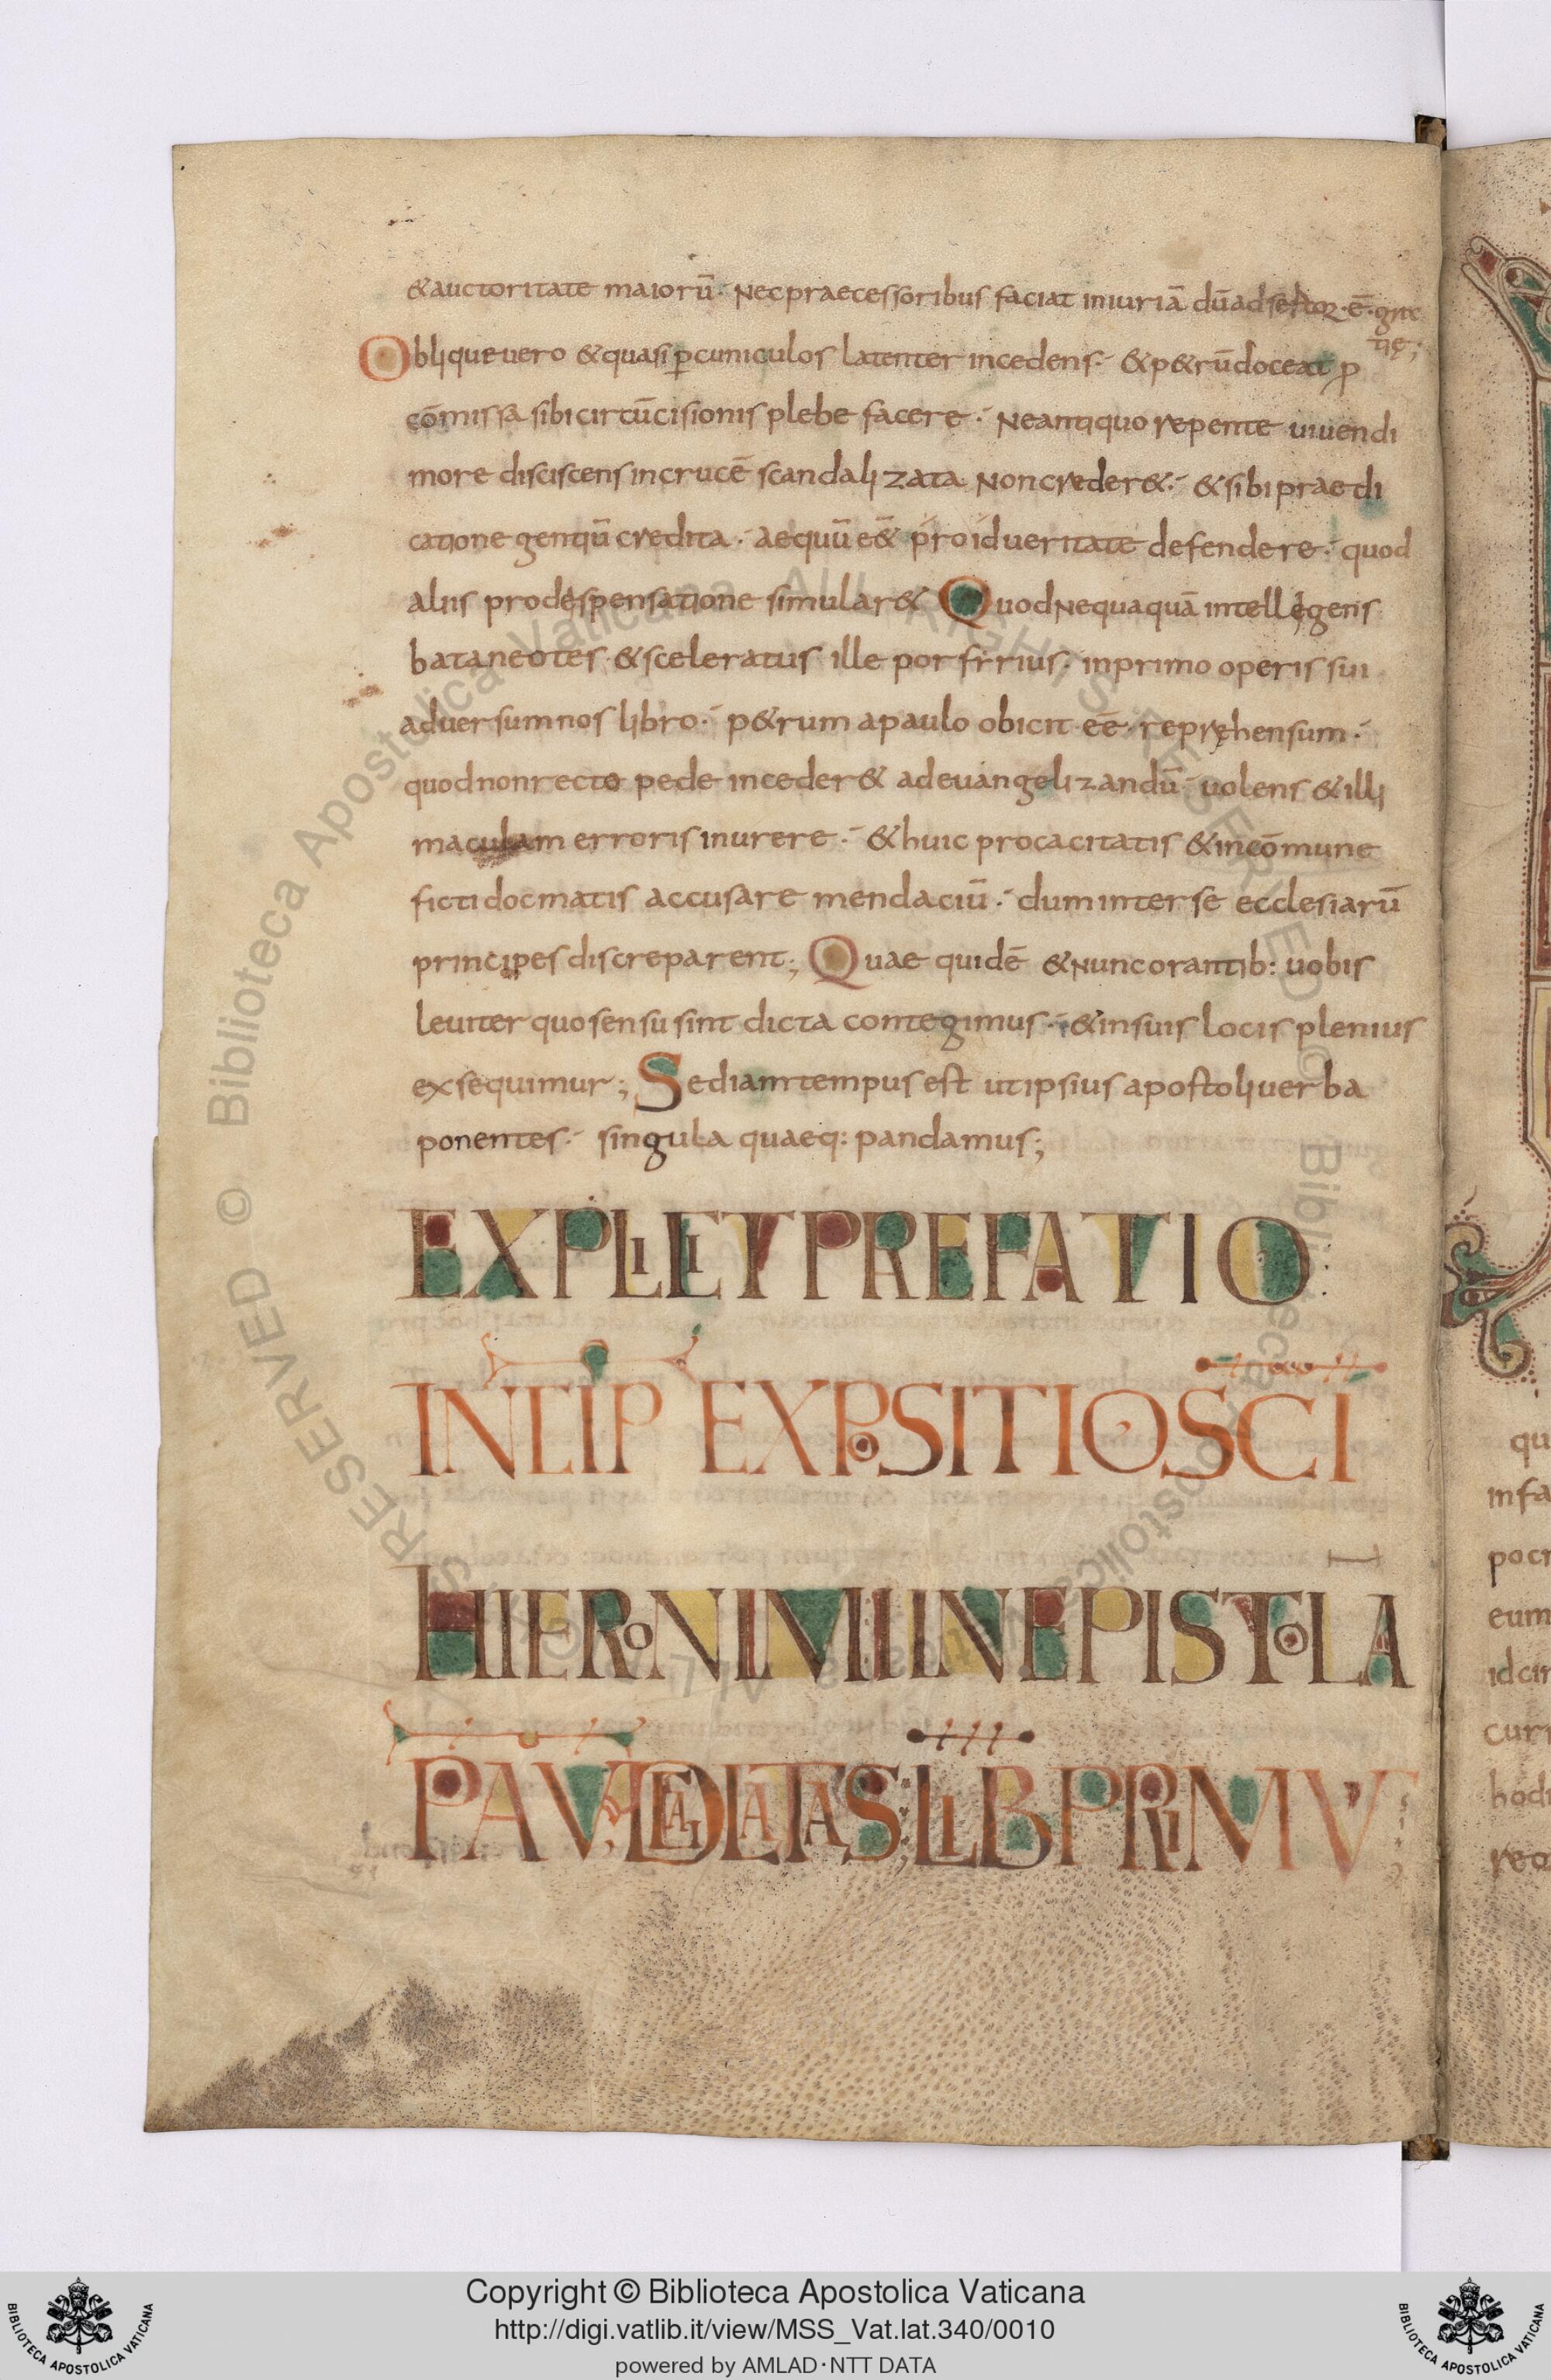 &auctoritate maiorū· Nec praecessoribus faciat iniuriā dū adsertor·ē·gra
tię;
Oblique uero &quasi ꝑ cuniculos latenter incedens· &p&rū doceat ꝓ
cōmissa sibi circūcisionis plebe facere· Ne antiquo repente uiuendi
more disciscens in crucē scandalizata Non creder&· &sibi praedi
catione gentiū credita· aequū e& pro id ueritate defendere· quod
aliis pro despensatione simular& Quod Nequaquā intellegens
bataneotes· &sceleratus ille porfirius· in primo operis sui
aduersum nos libro· p&rum a paulo obicit eē· repręhensum·
quod non recto pede inceder& ad euangelizandū· uolens &illi
maculam erroris inurere· &huic procacitatis &incōmune
ficti docmatis accusare mendaciū· dum inter se ecclesiarū
principes discreparent; Quae quidē &nunc orantib: uobis
leuiter quo sensu sint dicta contegimus· &in suis locis plenius
exsequimur; Sed iam tempus est ut ipsius apostoli uerba
ponentes· singula quaeq: pandamus;
EXPLICIT PREFATIO
INCIP EXPOSITIO SCI
HIERONIMI IN EPISTOLA
PAULI AD GALATAS LIB PRIMU
qu
infa
pocr
eum
idcir
curr
hodi
rea
© Biblioteca Apostolica Vaticana ALL RIGHTS RESERVED
Copyright © Biblioteca Apostolica Vaticana
http://digi.vatlib.it/view/MSS_Vat.lat.340/0010
powered by AMLAD·NTT DATA
BIBLIOTECA APOSTOLICA VATICANA
BIBLIOTECA APOSTOLICA VATICANA